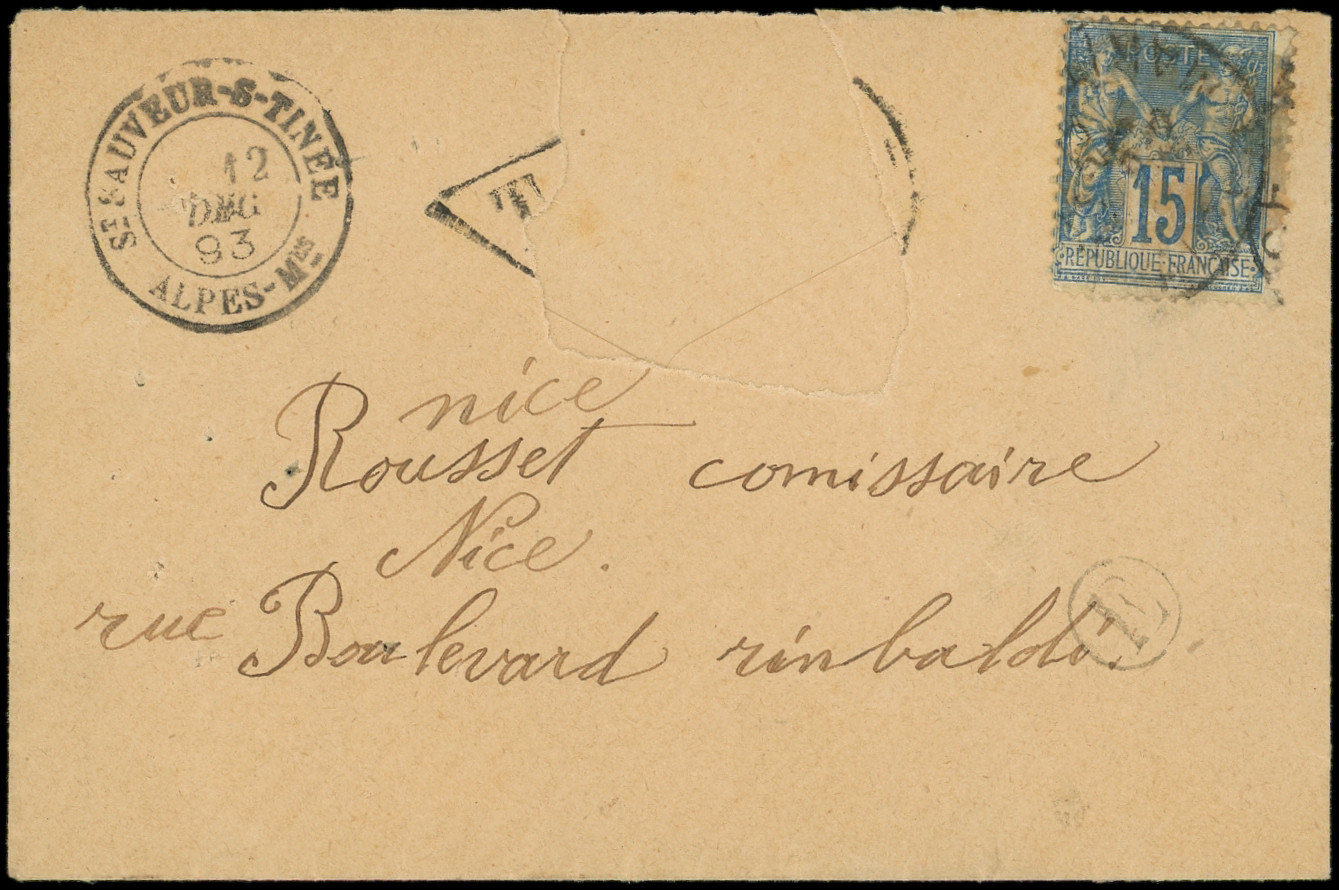 ST SAUVEUR-S-TINÉE
12
DEC
93
ALPES-MES
POSTE
15
RÉPUBLIQUE FRANÇAISE
nice
Rousset comissaire
Nice.
rue Boulevard rinbaldi.
E